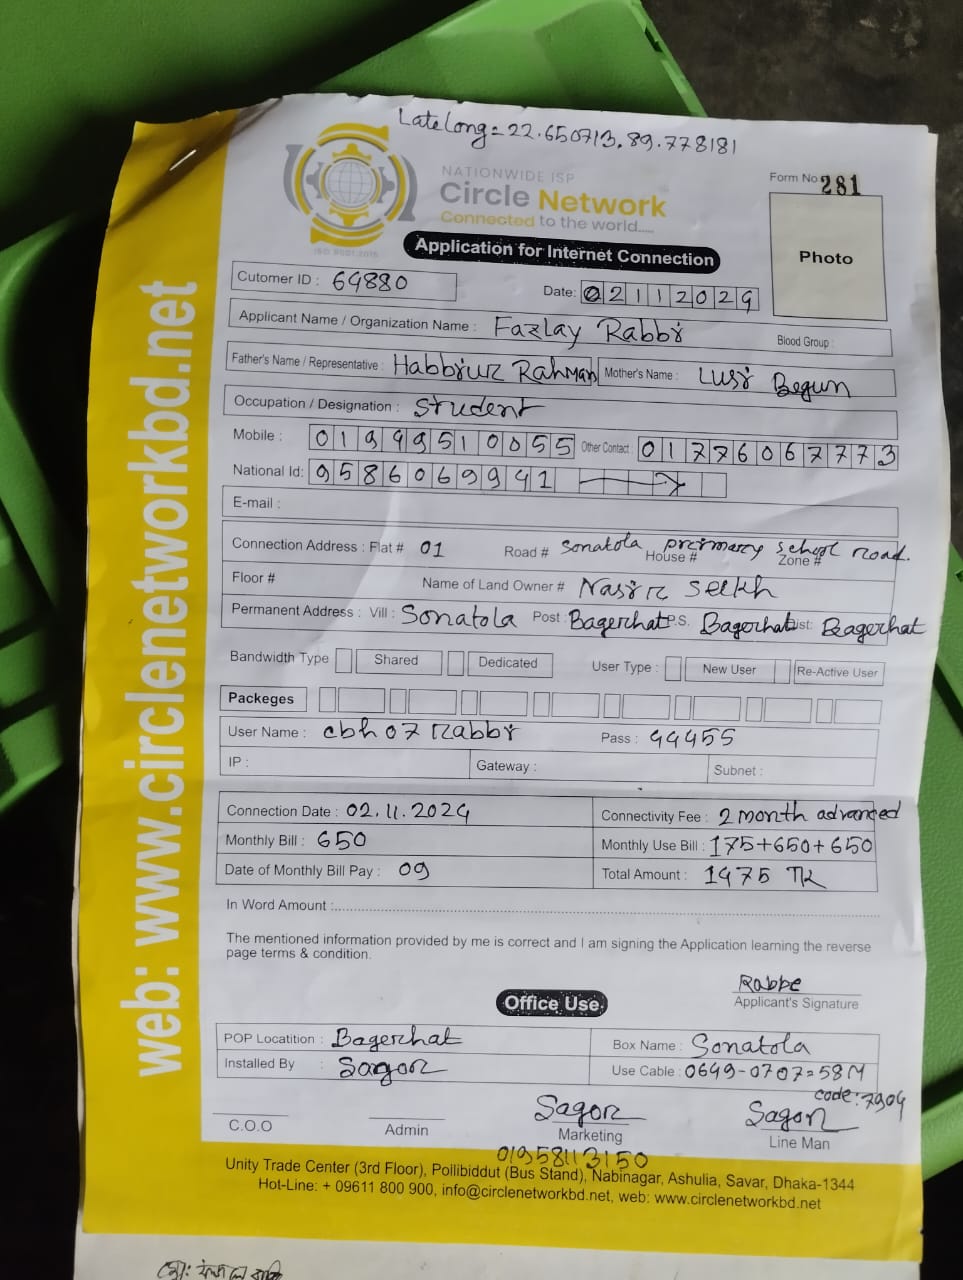 Late Long = 22.650713, 89.778181
NATIONWIDE ISP
Circle Network
Connected to the world.....
ISO 9001:2015
Form No 281
Photo
Application for Internet Connection
Cutomer ID : 64880
Date: 02112024
Applicant Name / Organization Name : Fazlay Rabbi Blood Group :
Father's Name / Representative : Habbiur Rahman Mother's Name : Lusi Begun
Occupation / Designation : Student
Mobile : 01999510055 Other Contact 01776067773
National Id: 9586069941
E-mail :
Connection Address : Flat # 01 Road # Sonatola primary school road.
House # Zone #
Floor # Name of Land Owner # Nasir Seikh
Permanent Address : Vill : Sonatola Post : Bagerhat P.S. Bagerhat Dist: Bagerhat
Bandwidth Type Shared Dedicated User Type : New User Re-Active User
Packeges
User Name : cbh07rabbi Pass : 44455
IP : Gateway : Subnet :
Connection Date : 02.11.2024 Connectivity Fee : 2 month advanced
Monthly Bill : 650 Monthly Use Bill : 175+650+650
Date of Monthly Bill Pay : 09 Total Amount : 1475 TK
In Word Amount :
The mentioned information provided by me is correct and I am signing the Application learning the reverse
page terms & condition.
Rabbe
Applicant's Signature
Office Use.
POP Locatition : Bagerhat Box Name : Sonatola
Installed By Sagor Use Cable : 0649-0707=58M
code: 7904
Sagor Sagor
C.O.O Admin Marketing Line Man
01958113150
Unity Trade Center (3rd Floor), Pollibiddut (Bus Stand), Nabinagar, Ashulia, Savar, Dhaka-1344
Hot-Line: + 09611 800 900, info@circlenetworkbd.net, web: www.circlenetworkbd.net
web: www.circlenetworkbd.net